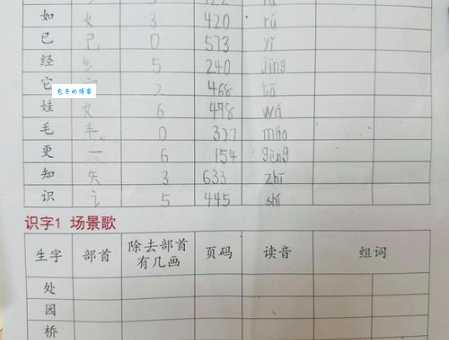 如 女 3 420 rú
已 己 0 573 yǐ
经 纟 5 240 jīng
它 2 468 tā
包子の博客
娃 女 6 478 wá
毛 毛 0 327 máo
更 一 6 154 gèng
知 矢 3 633 zhī
识 讠 5 445 shí
识字1 场景歌
生字 部首 除去部首有几画 页码 读音 组词
处
园
桥